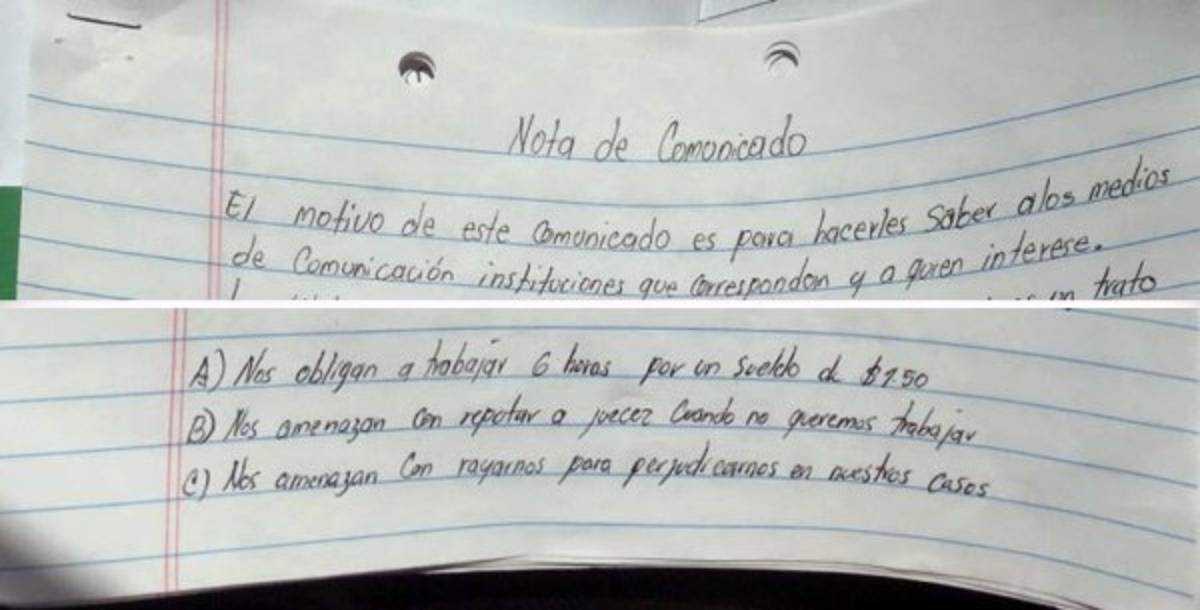 Nota de Comonicado
El motivo de este Comunicado es para hacerles saber alos medios
de Comunicación instituciones que Correspondan y a quien interese.
un trato
A) Nos obligan a trabajar 6 horas por un sueldo de $1.50
B) Nos amenazan Con repotar a juecez Cuando no queremos trabajar
C) Nos amenazan Con rayarnos para perjudicarnos en nuestros Casos